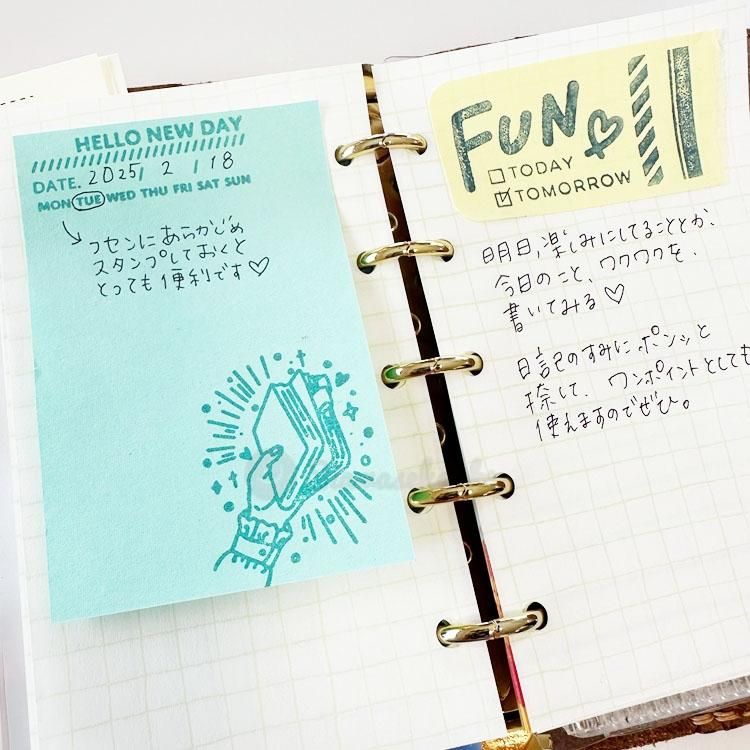 HELLO NEW DAY
DATE. 2025/ 2 / 18
MON TUE WED THU FRI SAT SUN
フセンにあらかじめ
スタンプしておくと
とっても便利です♡
FUN
TODAY
TOMORROW
明日、楽しみにしてることとか、
今日のこと、ワクワクを、
書いてみる♡
日記のすみにポンッと
捺して、ワンポイントとしても
使えますのでぜひ。